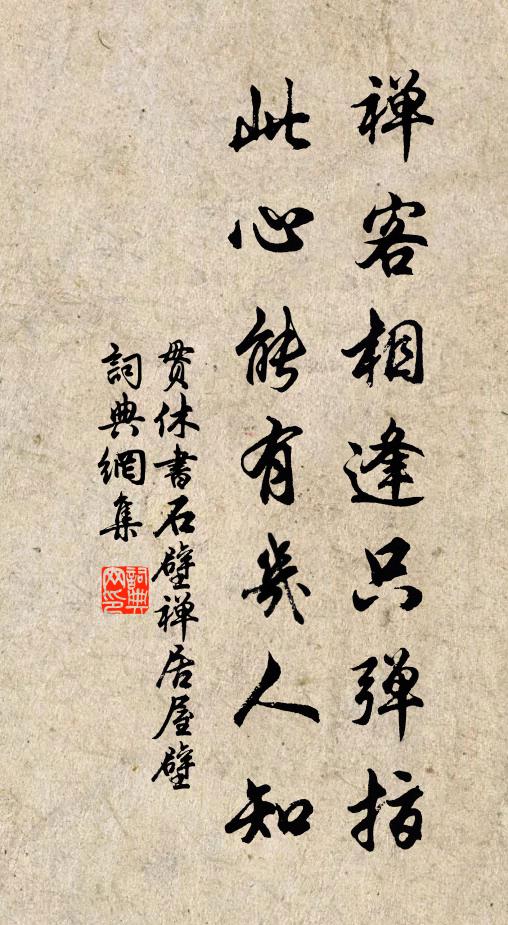 禅客相逢只弹指
此心能有幾人知
贯休書石壁禅居屋壁
詞典網集
詞典網印